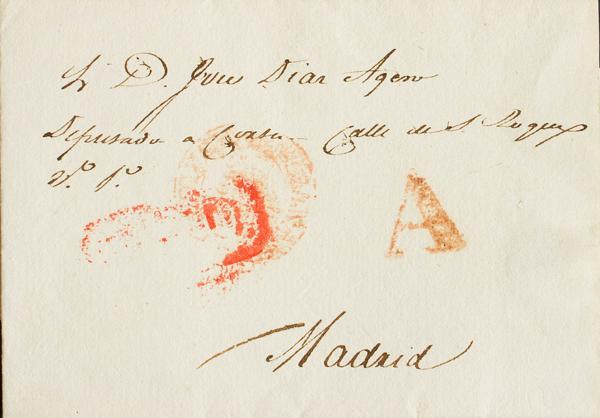 Sr D. Jose Diaz Agero
Diputado a Cortes Calle de S. Roque
nº 1º
A
Madrid